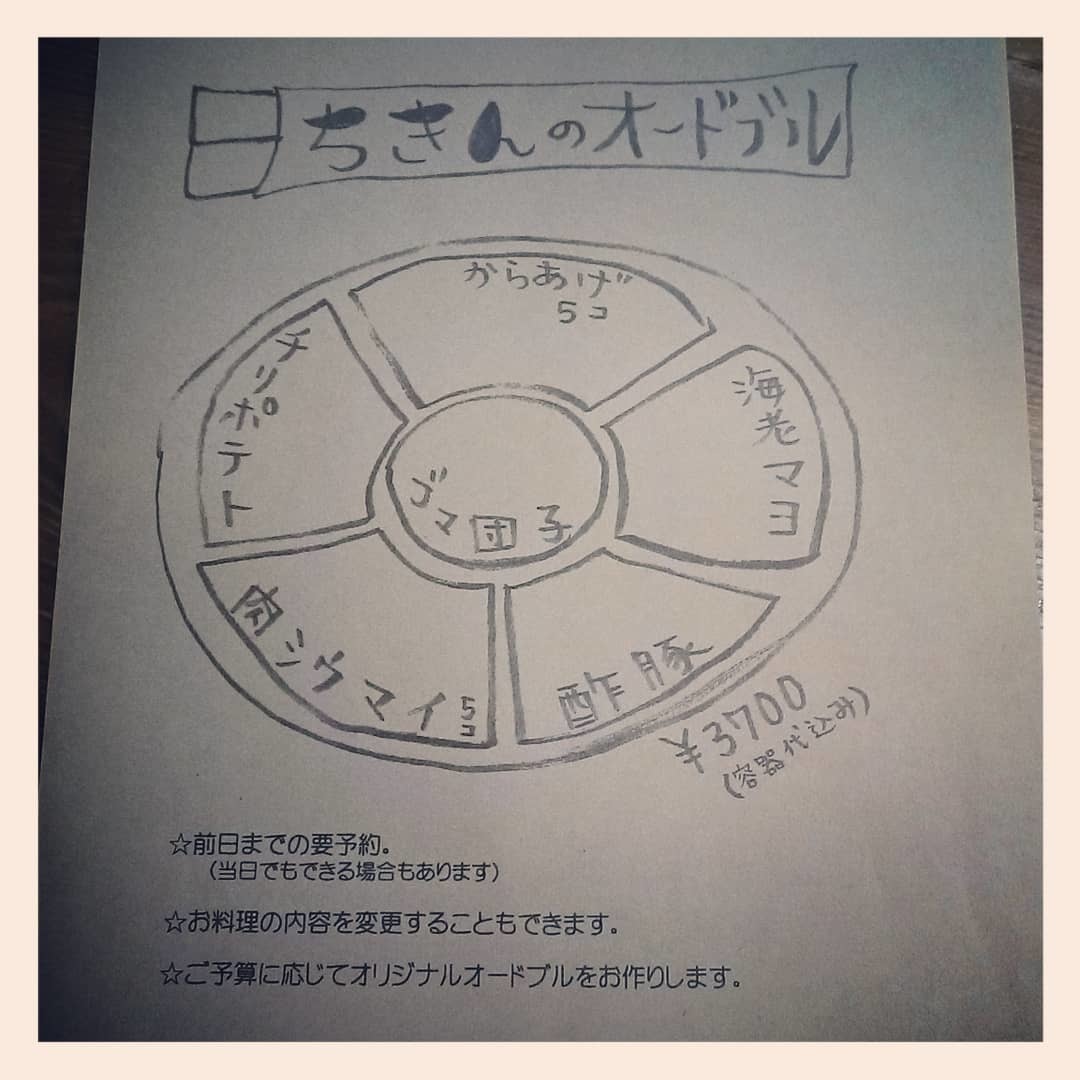 日ちきんのオードブル
からあげ
5コ
海老マヨ
酢豚
肉シウマイ5コ
チリポテト
ゴマ団子
¥3700
(容器代込み)
☆前日までの要予約。
(当日でもできる場合もあります)
☆お料理の内容を変更することもできます。
☆ご予算に応じてオリジナルオードブルをお作りします。